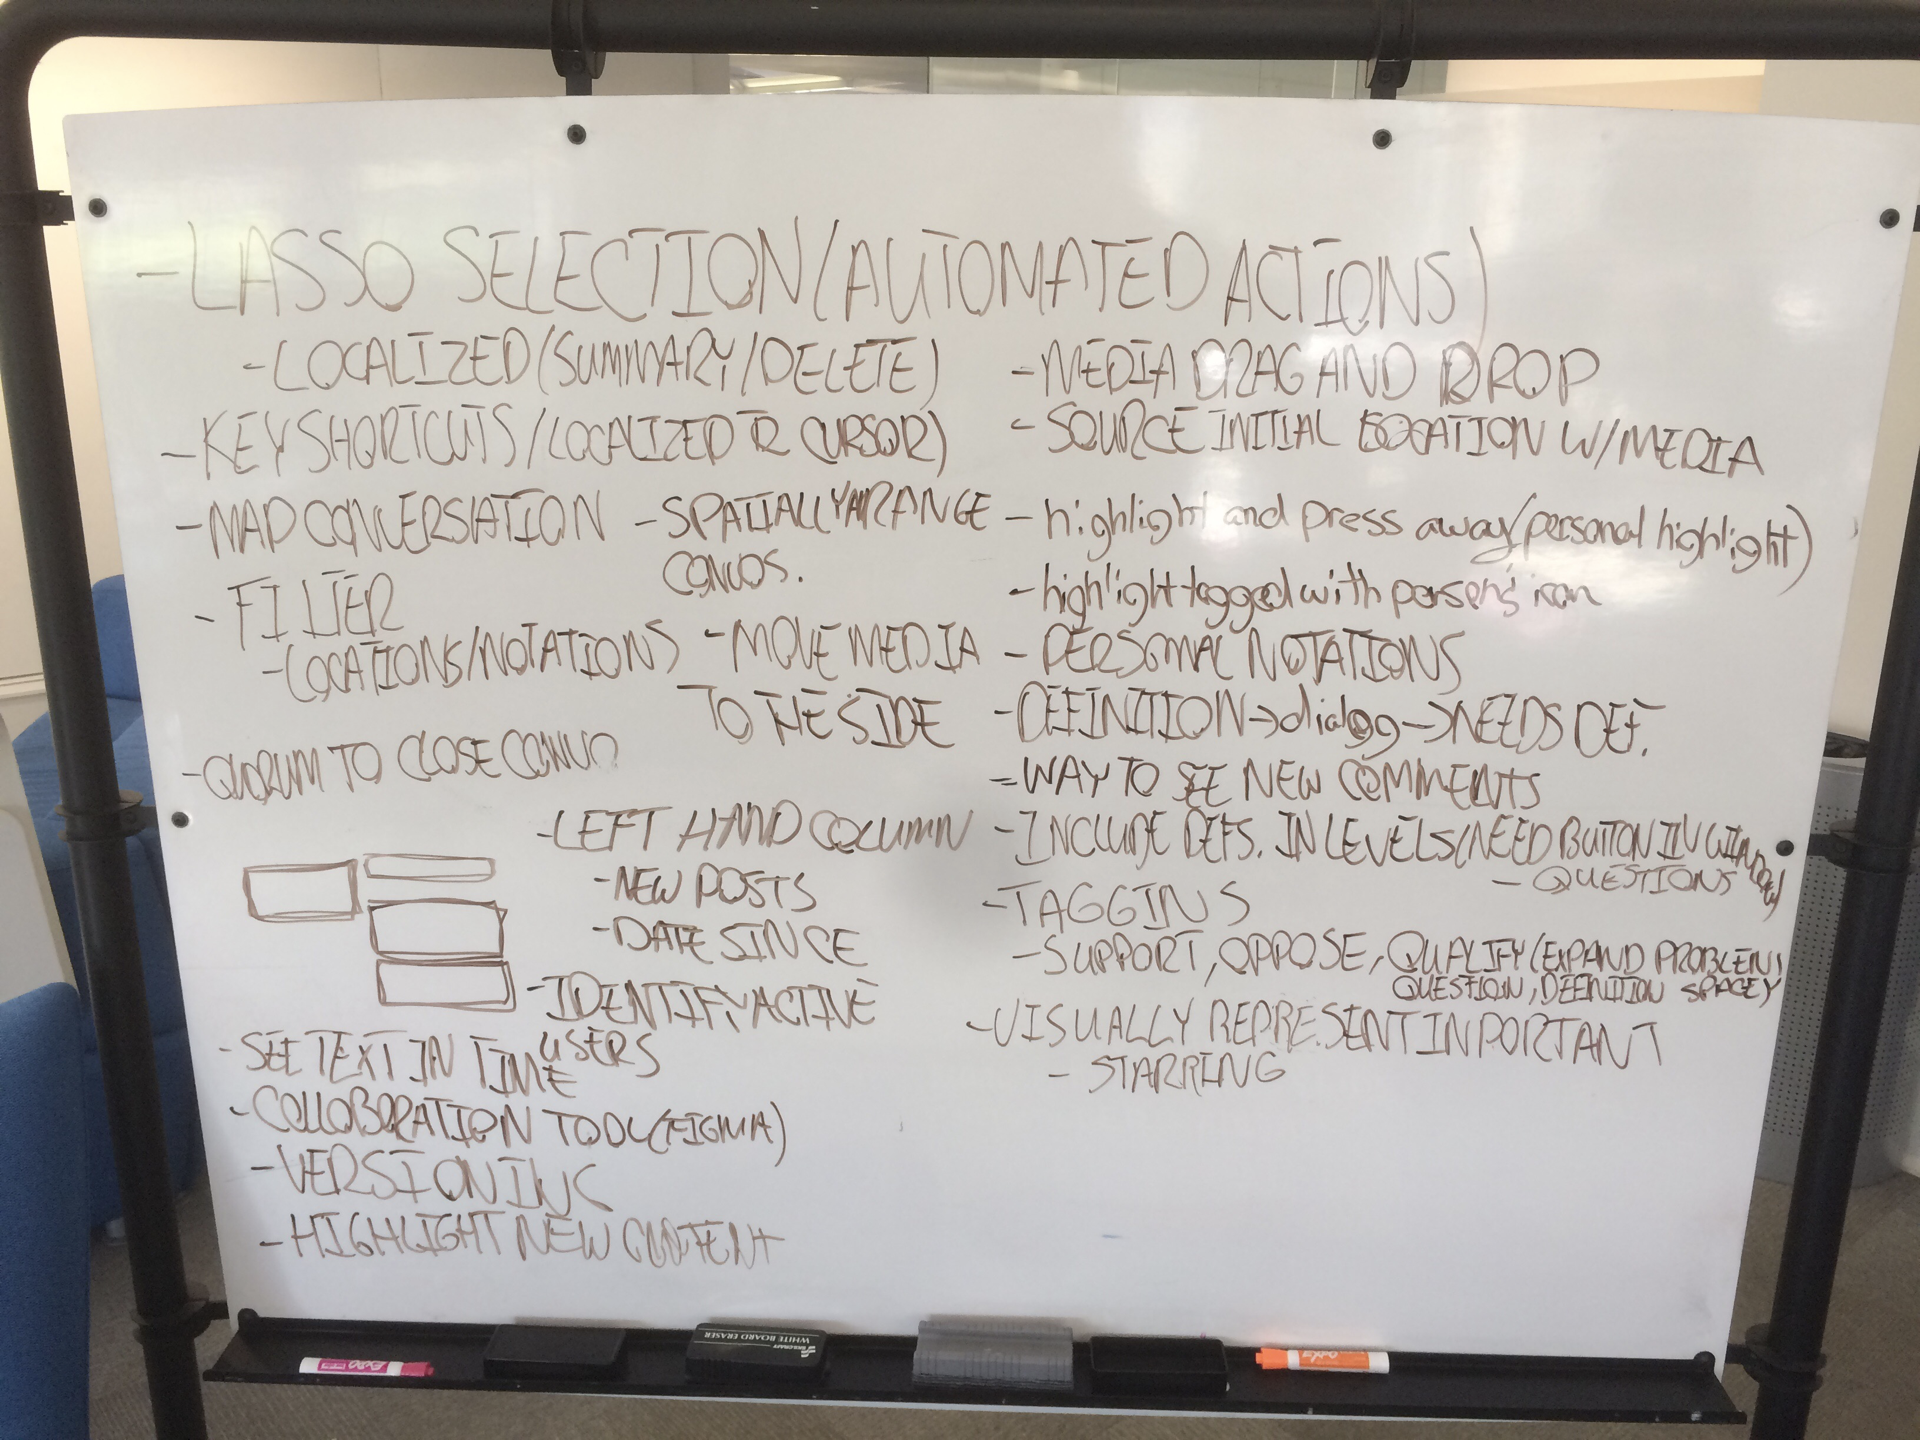 - LASSO SELECTION (AUTOMATED ACTIONS)
- LOCALIZED (SUMMARY/DELETE)
- KEY SHORTCUTS/LOCALIZED CURSOR)
- MAP CONVERSIATION
- SPATIALLY ARRANGE
CONVOS.
- FILTER
- LOCATIONS/NOTATIONS
- MOVE MEDIA
TO THE SIDE
- QUORUM TO CLOSE CONVO
- LEFT HAND COLUMN
- NEW POSTS
- DATE SINCE
- IDENTIFY ACTIVE
USERS
- SEE TEXT IN TIME
- COLLOBORATION TOOL (FIGMA)
- VERSIONING
- HIGHLIGHT NEW CONTENT
- MEDIA DRAG AND DROP
- SOURCE INITIAL LOCATION W/ MEDIA
- highlight and press away (personal highlight)
- highlight tagged with person's icon
- PERSONAL NOTATIONS
- DEFINITION → dialog → NEEDS DEF.
- WAY TO SEE NEW COMMENTS
- INCLUDE DEFS. IN LEVELS (NEED BUTTON IN WINDOW)
- QUESTIONS
- TAGGING
- SUPPORT, OPPOSE, QUALIFY (EXPAND PROBLEM,
QUESTION, DEFINITION SPACE)
- VISUALLY REPRESENT IMPORTANT
- STARRING
WHITE BOARD ERASER
EXPO
EXPO